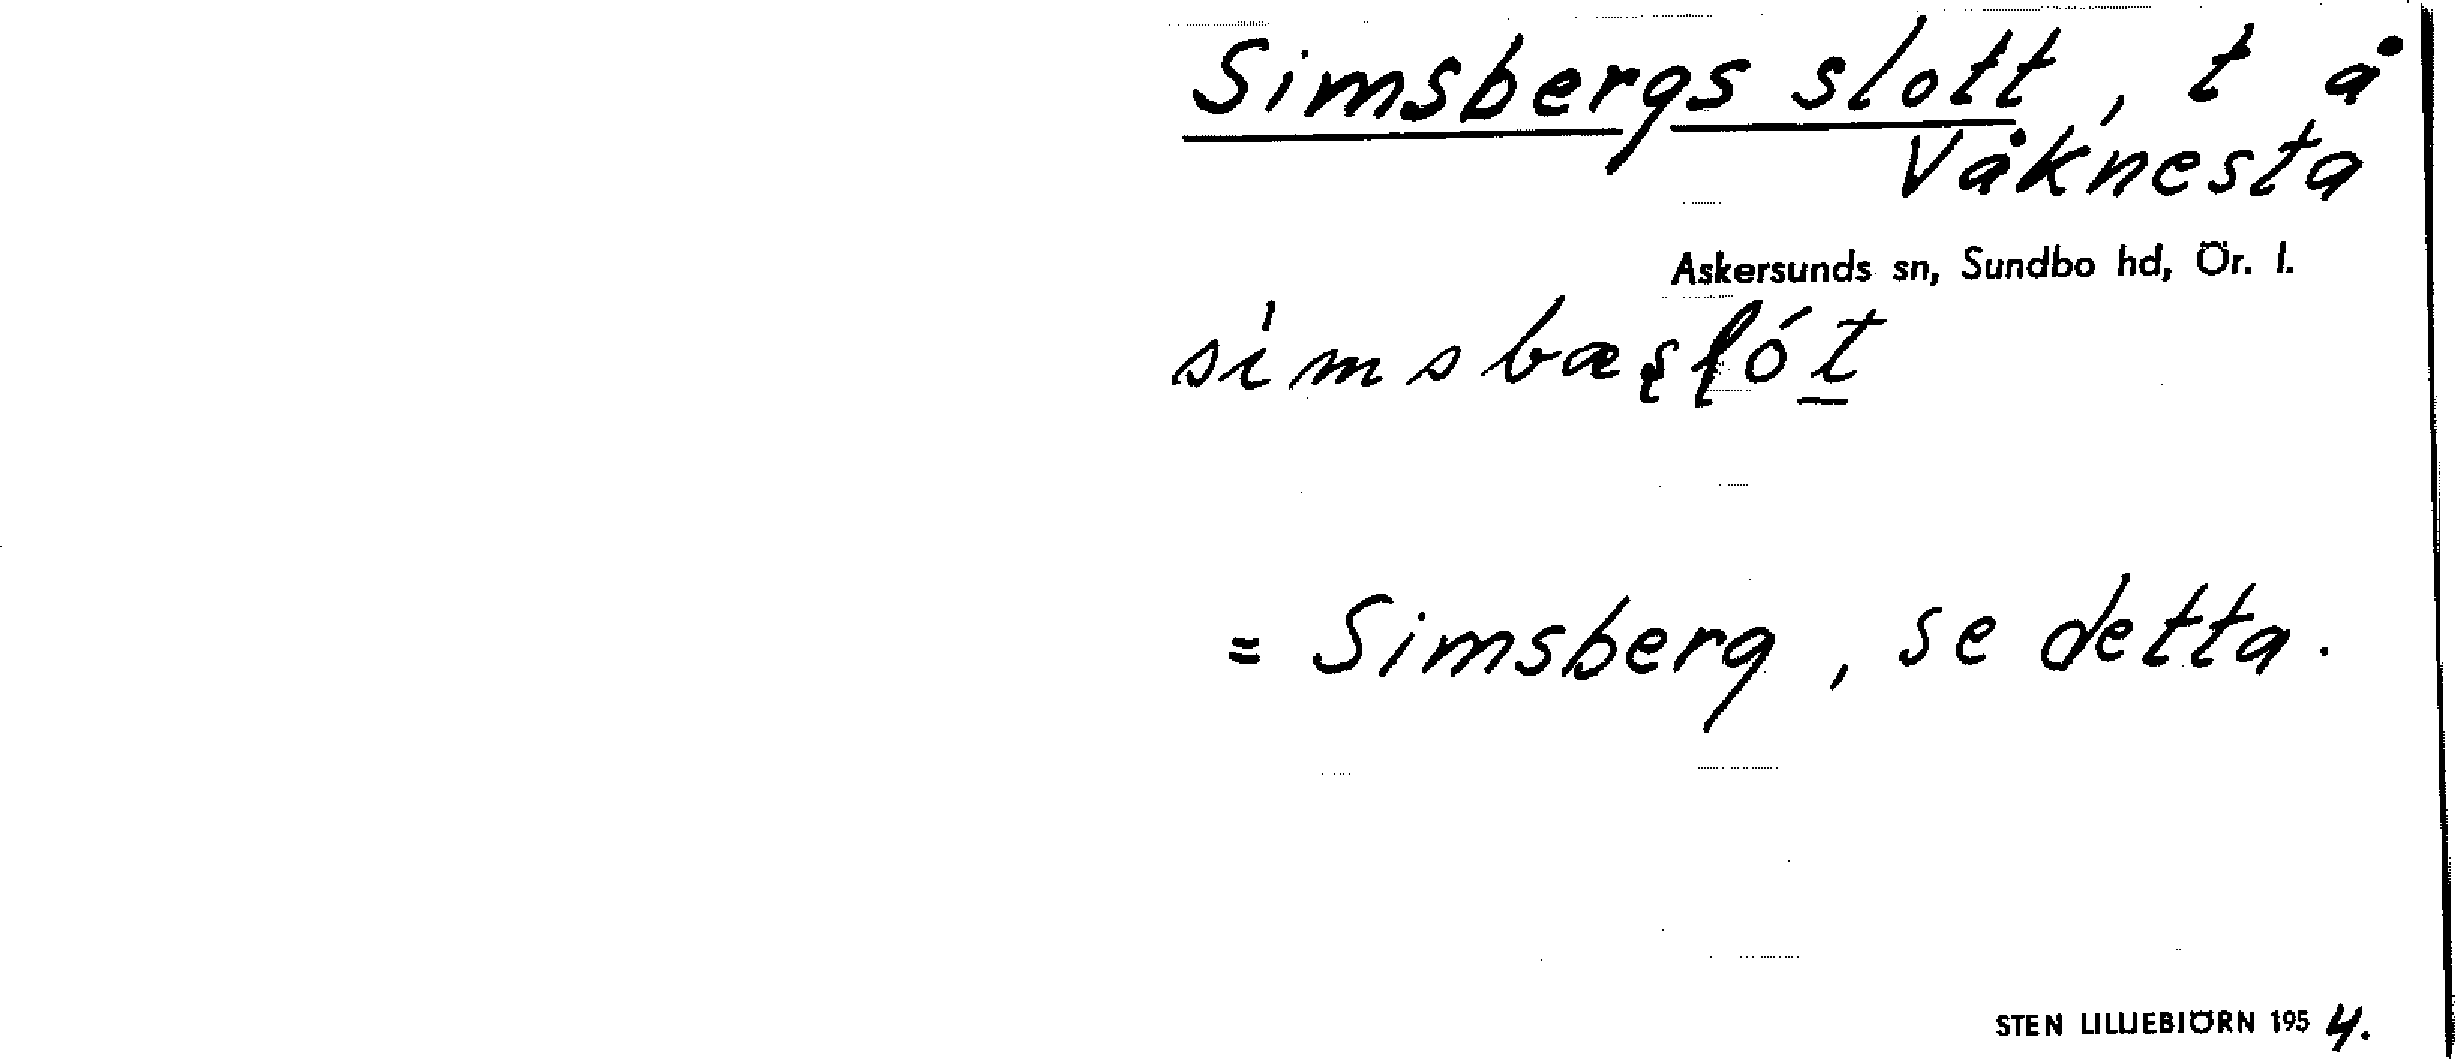 Simsbergs slott, t å
Våknesta
Askersunds sn, Sundbo hd, Ör. l.
sìmsbæʂɭót̲
= Simsberg, se detta.
STEN LILLIEBIÖRN 1954.